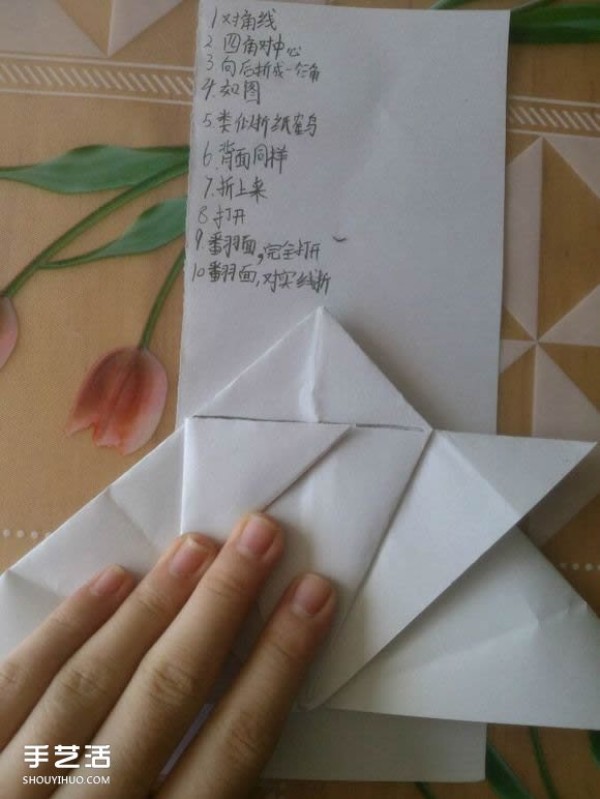 1 对角线
2 四角对中心
3 向后折成一个角
4. 如图
5. 类似折纸鹤
6. 背面同样
7. 折上来
8 打开
9 番羽面,完全打开
10 番羽面,对实线折
手艺活
SHOUYIHUO.COM